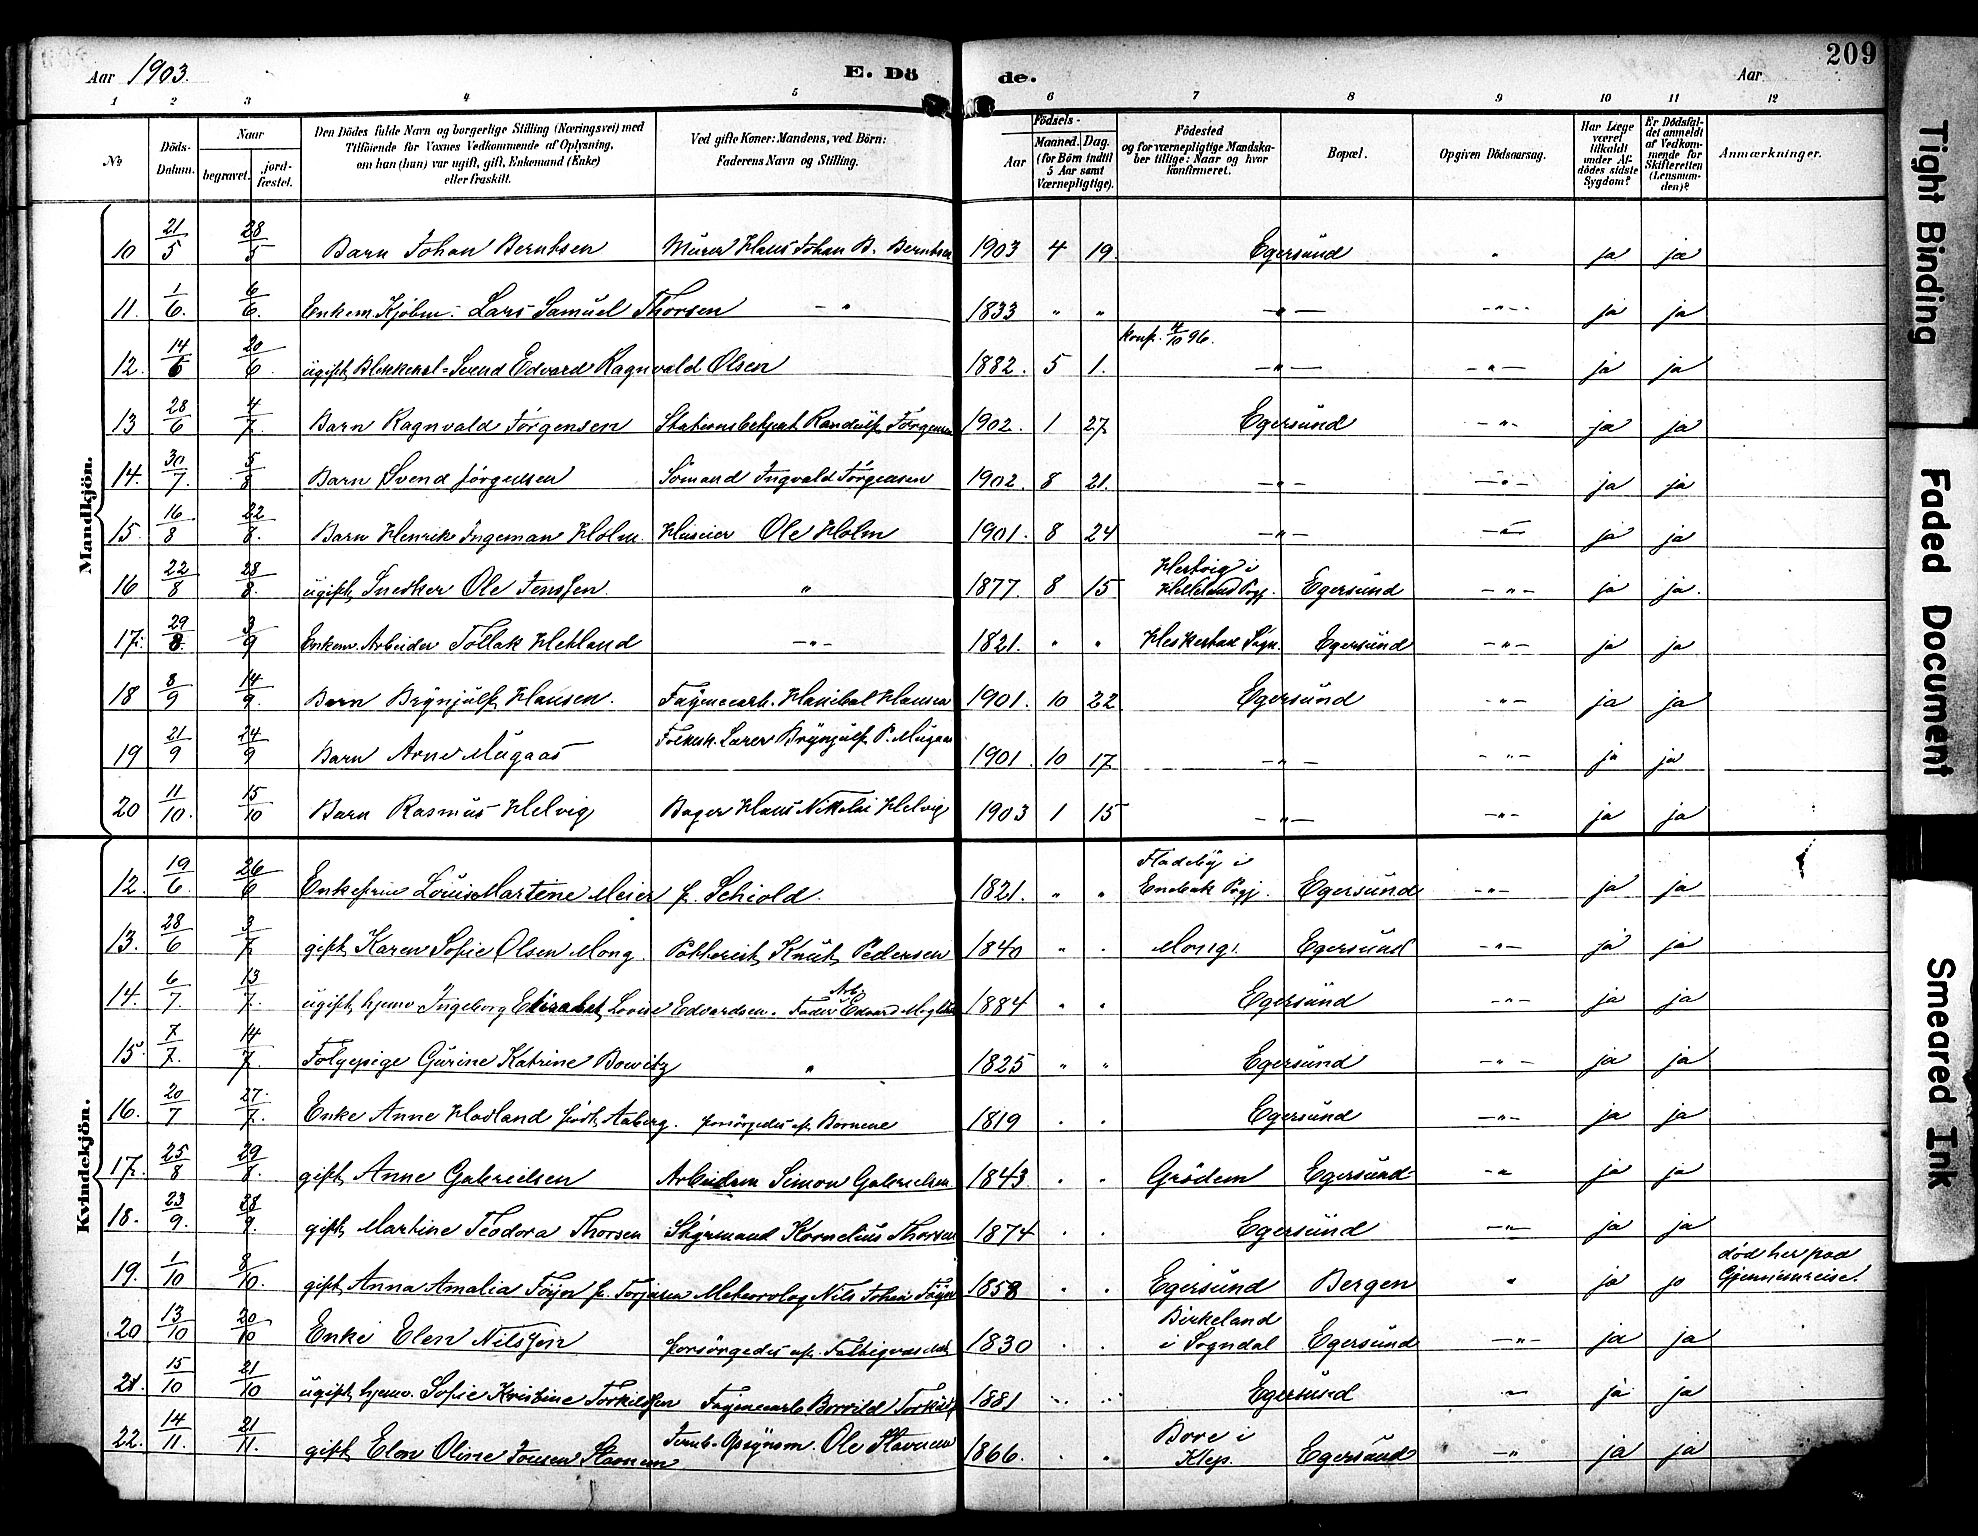 209
Aar 1903.
E. Dö
de.
Aar
1 2 3 4 5 6 7 8 9 10 11 12
No
Döds-Datum.
Naar
begravet.
jord-fæstet.
Den Dödes fulde Navn og borgerlige Stilling (Næringsvei) med
Tilföiende för Voxnes Vedkommende af Oplysning,
om han (hun) var ugift, gift, Enkemand (Enke)
eller fraskilt.
Ved gifte Koner: Mandens, ved Börn:
Faderens Navn og Stilling.
Födsels-
Aar
Maaned. Dag.
(for Börn indtil
5 Aar samt
Værnepligtige).
Födested
og for værnepligtige Mandska-
ber tillige: Naar og hvor
konfirmeret.
Bopæl.
Opgiven Dödsaarsag.
Har Læge
været
tilkaldt
under Af-
dödes sidste
Sygdom?
Er Dödsfal-
det anmeldt
af Vedkom-
mende for
Skifteretten
(Lensman-
den)?
Anmærkninger.
Mandkjön.
10 21/5 28/5 Barn Johan Berntsen Murer Hans Johan B. Berntsen 1903 4 19 Egersund " ja ja
11. 1/6. 6/6. Enkem. Kjøbm. Lars Samuel Thorsen — " 1833 " " —"— —"— ja ja
konf. 4/10 96.
12. 14/6 20/6. ugift Blikkensl. Svend Edvard Ragnvald Olsen 1882. 5 1. —"— —"— ja ja
13 28/6 4/7. Barn Ragnvald Jørgensen Stationsbetjent Randulf Jørgensen 1902. 1 27 Egersund —"— ja ja
14. 30/7. 5/8 Barn Svend Jørgensen Sømand Ingvald Jørgensen 1902. 8 21. —"— —"— ja ja
15. 16/8 22/8. Barn Henrik Ingeman Holm Huseier Ole Holm 1901. 8 24 —"— —"— ja ja
16 22/8 28/8. ugift Snedker Ole Jenssen. " 1877. 8 15 Hertvig i Helleland Pgj. Egersund —"— ja ja.
17. 29/8. 3/9 Enkem. Arbeider Tollak Hetland —"— 1821. " " Heskestad Sogn. Egersund —"— ja ja
18 8/9 14/9. Barn Brynjulf Hansen. Fayencearb. Hanibal Hansen 1901. 10 22 Egersund —"— ja ja
19 21/9 24/9 Barn Arne Mugaas Folkesk. Lærer Brynjulf P. Mugaas 1901 10 17 —"— —"— ja ja
20 11/10. 15/10 Barn Rasmus Helvig Bager Hans Nikolai Helvig 1903 1 15 —"— —"— ja ja
Kvindekjön.
12. 19/6. 26/6 Enkefrue Louise Martine Meier f. Schiold. 1821. " " Fladeby i Enebak Pgj. Egersund —"— ja ja
13. 28/6 3/7. gift Karen Sofie Olsen Mong. Knut Pedersen 1840 " " Mong. Egersund —"— ja ja
14. 6/7. 13/7. ugift hjemv. Ingeborg Elisabet Lovise Edvardsen. Fader Arb. Edvard 1884 " " Egersund —"— ja ja
15. 7/7. 14/7. Følgepige Gurine Katrine Bowitz " 1825 " " Egersund —"— ja ja
16. 20/7 27/7. Enke Anne Hovland født Aaberg. forsørgedes af Børnene 1819 . . Egersund —"— ja ja
17. 25/8 29/8. gift Anne Gabrielsen Arbeider Simon Gabrielsen 1843. . " Grødem Egersund —" ja ja
18. 23/9. 28/9. gift Martine Teodora Thorsen Styrmand Kornelius Thorsen 1874 . . Egersund —"— ja ja
19. 1/10 8/10. gift Anna Amalia Føyn f. Torjusen Meteorolog Nils Johan Føyn 1858 . . Egersund Bergen " ja ja død her paa Gjennemreise.
20 13/10 20/10 Enke Elen Nilssen forsørgedes af Fattigvæsenet 1830 . . Birkeland i Sogndal Egersund —"— ja ja
21. 15/10 21/10 ugift hjemv. Sofie Kristine Torkildsen Fayencearb. Borvild Torkilds 1881 . . Egersund —"— ja ja
22. 14/11. 21/11. gift Elen Oline Jonsen Stavnem Ole Stavnem 1866. . " Bore i Klep. Egersund —"— ja ja
Tight Binding
Faded Document
Smeared Ink